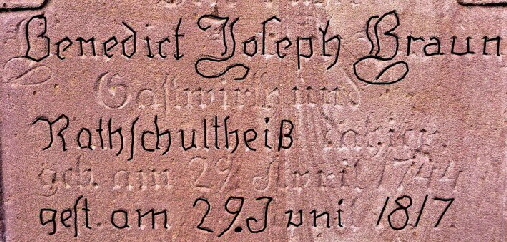 Benedict Joseph Braun
Gastwirth und
Rathschultheiß dahier.
geb. am 29. April 1744
gest. am 29. Juni 1817